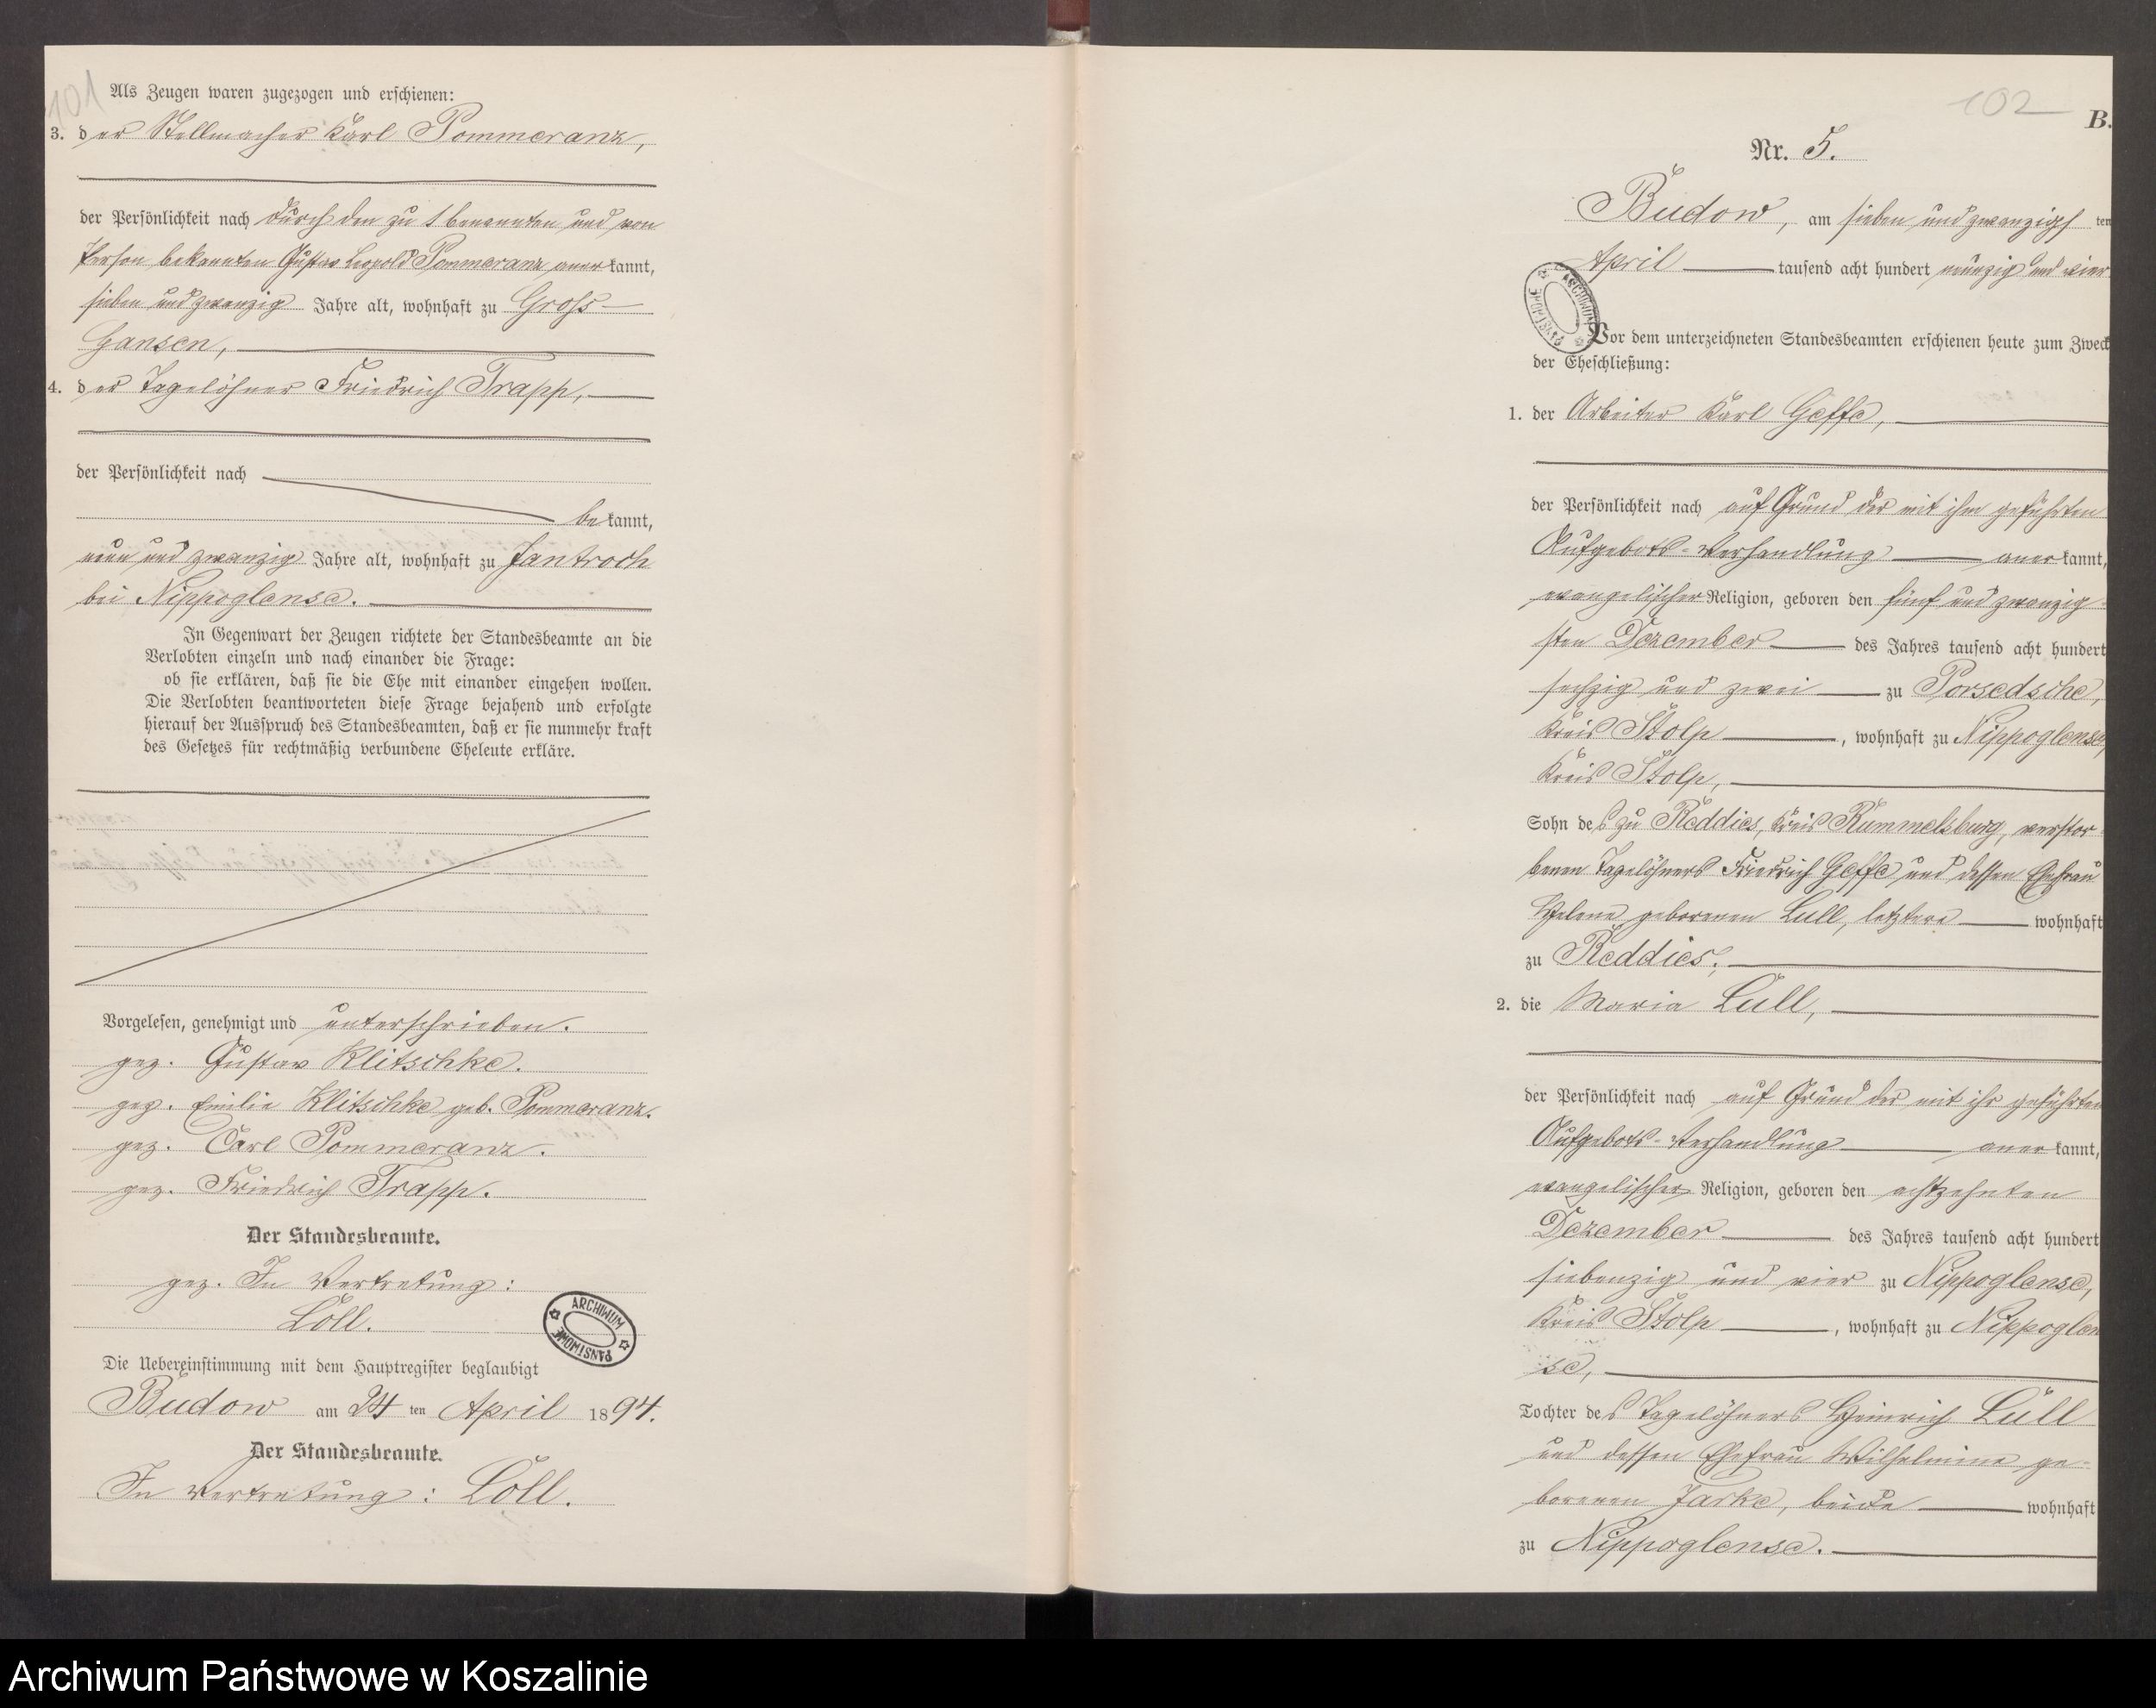 101
Als Zeugen waren zugezogen und erschienen:
3. der Stellmacher Karl Pommeranz,
der Persönlichkeit nach durch den zu 1 benannten und von
Person bekannten Gustav Leopold Pommeranz anerkannt,
sieben und zwanzig Jahre alt, wohnhaft zu Gross-
Gansen,
4. der Tagelöhner Friedrich Trapp,
der Persönlichkeit nach
bekannt,
neun und zwanzig Jahre alt, wohnhaft zu Jantroch
bei Nippoglense.
In Gegenwart der Zeugen richtete der Standesbeamte an die
Verlobten einzeln und nach einander die Frage:
ob sie erklären, daß sie die Ehe mit einander eingehen wollen.
Die Verlobten beantworteten diese Frage bejahend und erfolgte
hierauf der Ausspruch des Standesbeamten, daß er sie nunmehr kraft
des Gesetzes für rechtmäßig verbundene Eheleute erkläre.
Vorgelesen, genehmigt und unterschrieben.
gez. Gustav Klitschke.
gez. Emilie Klitschke geb. Pommeranz.
gez. Carl Pommeranz.
gez. Friedrich Trapp.
Der Standesbeamte.
gez. In Vertretung:
Löll.
ARCHIWUM PAŃSTWOWE
Die Uebereinstimmung mit dem Hauptregister beglaubigt
Budow am 24 ten April 1894.
Der Standesbeamte.
In Vertretung: Löll.
102
B.
Nr. 5.
Budow, am sieben und zwanzigs ten
April tausend acht hundert neunzig und vier
ARCHIWUM PAŃSTWOWE
Vor dem unterzeichneten Standesbeamten erschienen heute zum Zweck
der Eheschließung:
1. der Arbeiter Karl Geffe,
der Persönlichkeit nach auf Grund der mit ihm geführten
Aufgebots-Verhandlung anerkannt,
evangelischer Religion, geboren den fünf und zwanzig-
sten Dezember des Jahres tausend acht hundert
sechzig und zwei zu Porsedsche,
Kreis Stolp, wohnhaft zu Nippoglense,
Kreis Stolp,
Sohn des zu Reddies, Kreis Rummelsburg, verstor-
benen Tagelöhners Friedrich Geffe und dessen Ehefrau
Helene geborenen Lüll, letztere wohnhaft
zu Reddies;
2. die Maria Lüll,
der Persönlichkeit nach auf Grund der mit ihr geführten
Aufgebots-Verhandlung anerkannt,
evangelischer Religion, geboren den achtzehnten
Dezember des Jahres tausend acht hundert
siebenzig und vier zu Nippoglense,
Kreis Stolp, wohnhaft zu Nippoglen
se,
Tochter des Tagelöhners Heinrich Lüll
und dessen Ehefrau Wilhelmine ge-
borenen Jarke, beide wohnhaft
zu Nippoglense.
Archiwum Państwowe w Koszalinie